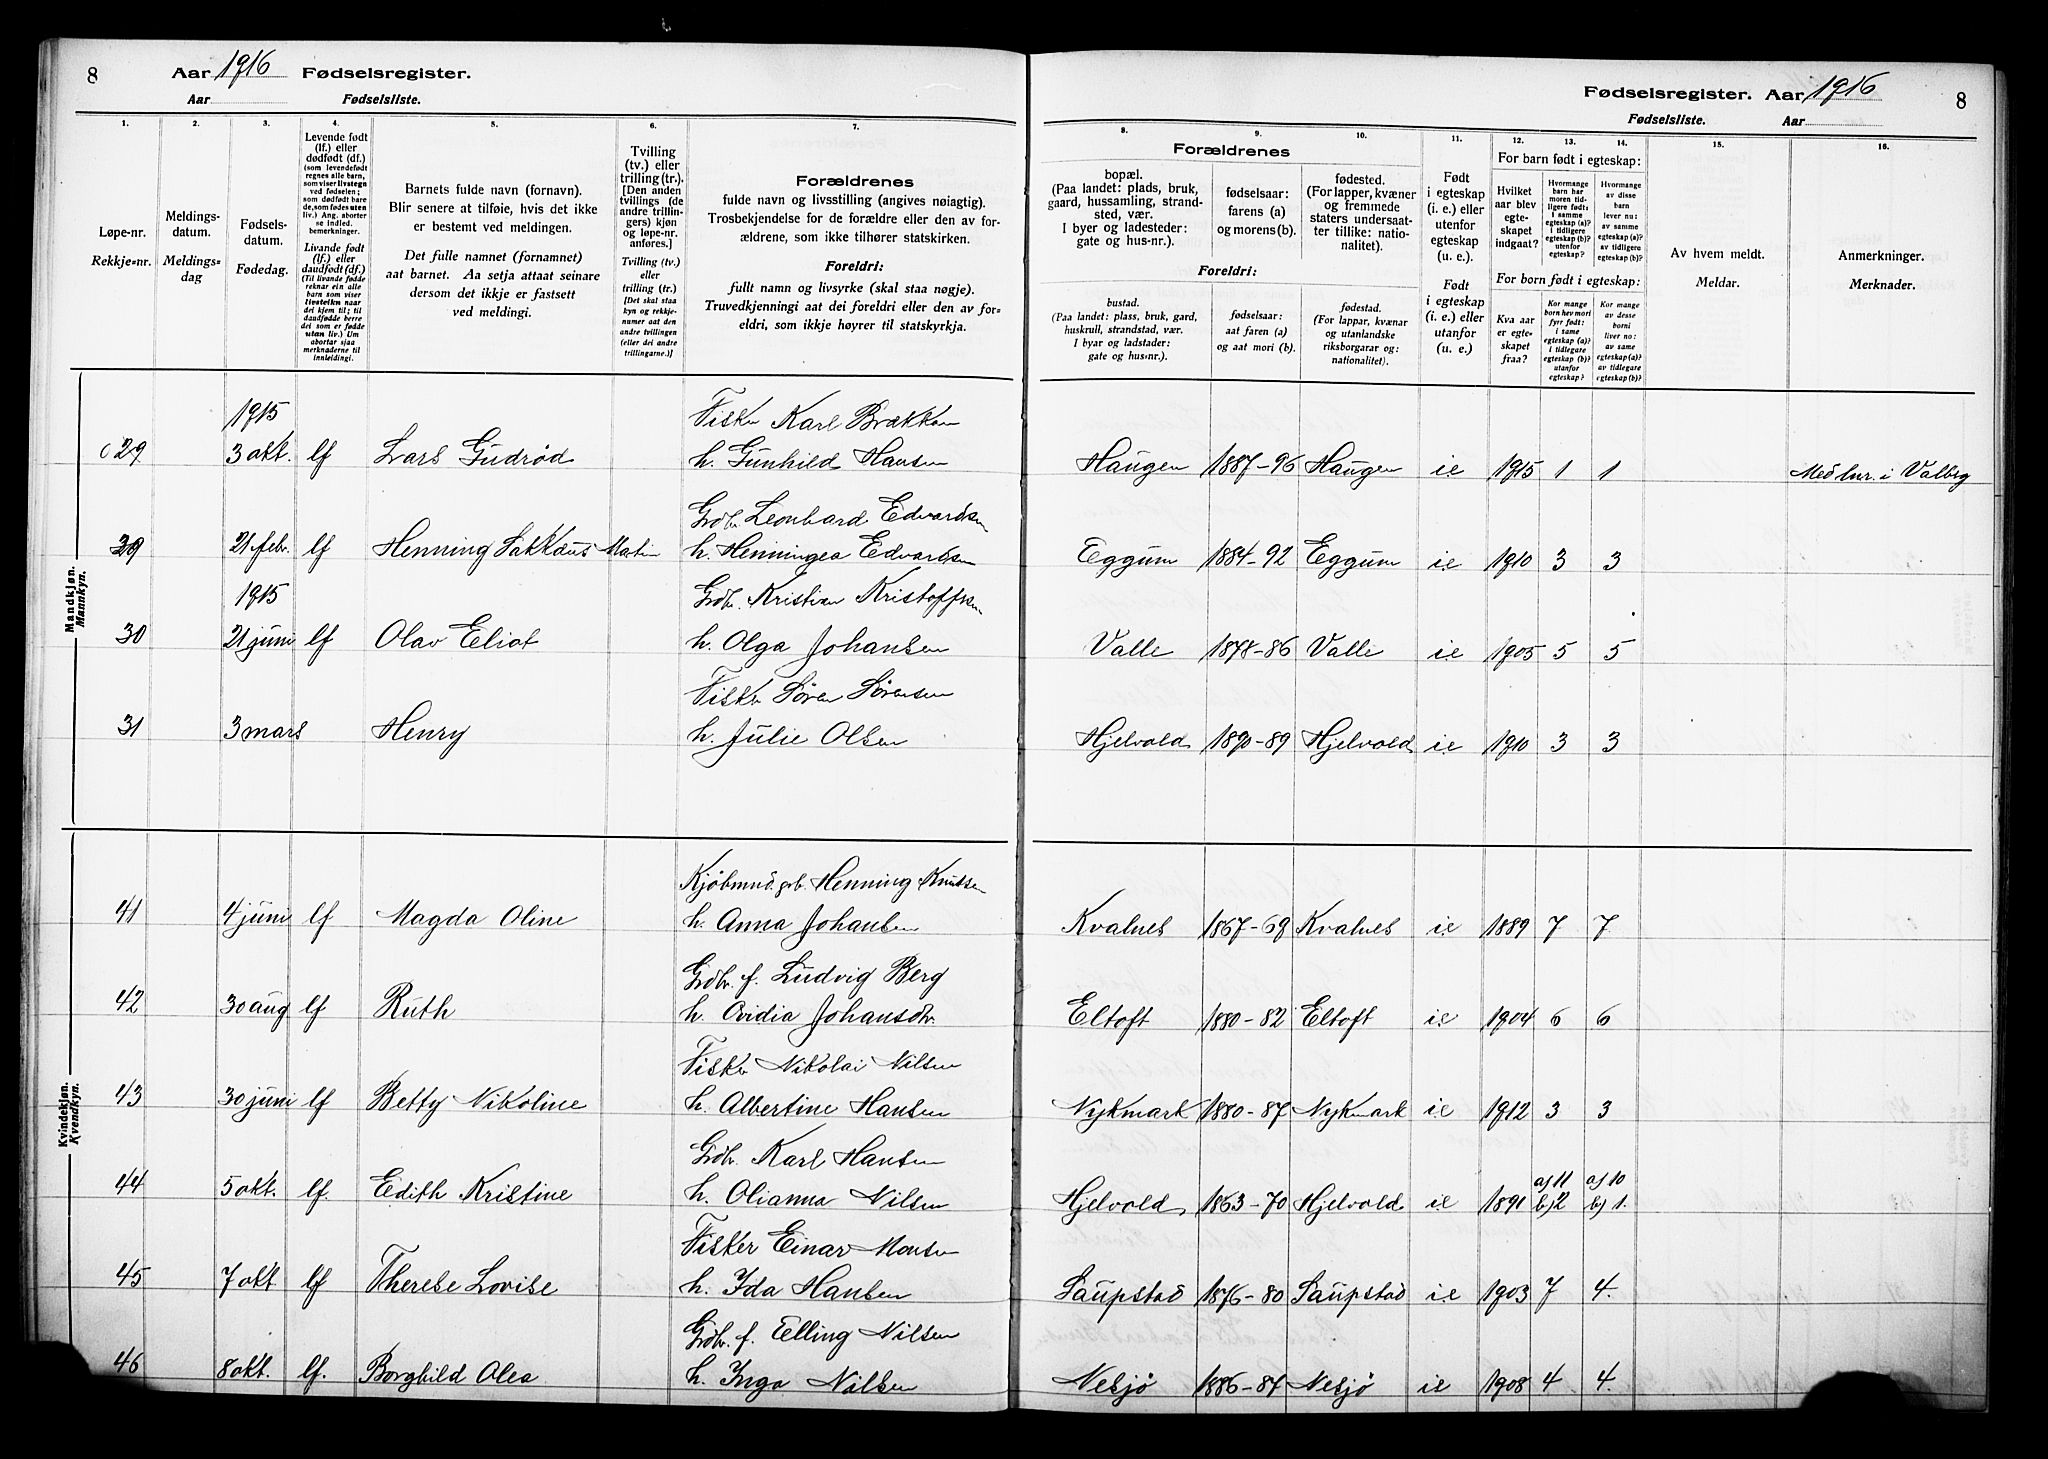 8 Aar 1916 Fødselsregister.
Aar Fødselsliste.
Fødselsregister. Aar 1916 8
Fødselsliste. Aar
1.
Løpe-nr.
Rekkje-nr.
2.
Meldings-
datum.
Meldings-
dag
3.
Fødsels-
datum.
Fødedag.
4.
Levende født
(lf.) eller
dødfødt (df.)
(som levendefødt
regnes alle barn,
som viser livstegn
ved fødselen;
som dødfødt bare
de, som fødes uten
liv.) Ang. aborter
se indled.
bemerkninger.
Livande født
(lf.) eller
daudfødt (df.)
(Til livande fødde
reknar ein alle
born som viser
livsteikn naar
dei kjem til; til
daudfødde berre
dei som er fødde
utan liv.) Um
abortar sjaa
merknaderne til
innleidingi.
5.
Barnets fulde navn (fornavn).
Blir senere at tilføie, hvis det ikke
er bestemt ved meldingen.
Det fulle namnet (fornamnet)
aat barnet. Aa setja attaat seinare
dersom det ikkje er fastsett
ved meldingi.
6.
Tvilling
(tv.) eller
trilling (tr.).
[Den anden
tvillings (de
andre trillin-
gers) kjøn
og løpe-nr.
anføres.]
Tvilling (tv.)
eller
trilling (tr.)
[Det skal staa
kyn og rekkje-
numer aat den
andre tvillingen
(eller dei andre
trillingarne.)]
7.
Forældrenes
fulde navn og livsstilling (angives nøiagtig).
Trosbekjendelse for de forældre eller den av for-
ældrene, som ikke tilhører statskirken.
Foreldri:
fullt namn og livsyrke (skal staa nøgje).
Truvedkjenningi aat dei foreldri eller den av for-
eldri, som ikkje høyrer til statskyrkja.
Forældrenes
8.
bopæl.
(Paa landet: plads, bruk,
gaard, hussamling, strand-
sted, vær.
I byer og ladesteder:
gate og hus-nr.).
9.
fødselsaar:
farens (a)
og morens (b).
10.
fødested.
(For lapper, kvæner
og fremmede
staters undersaat-
ter tillike: natio-
nalitet).
Foreldri:
bustad.
(Paa landet: plass, bruk, gard,
huskrull, strandstad, vær.
I byar og ladstader:
gate og hus-nr.).
fødselsaar:
aat faren (a)
og aat mori (b).
fødestad.
(For lappar, kvænar
og utanlandske
riksborgarar og:
nationalitet).
11.
Født
i egteskap
(i. e.) eller
utenfor
egteskap
(u. e.).
Født
i egteskap
(i. e.) eller
utanfor
(u. e.).
12. 13. 14.
For barn født i egteskap:
Hvilket
aar blev
egte-
skapet
indgaat?
Hvormange
barn har
moren tid-
ligere født:
i samme
egteskap (a)?
i tidligere
egteskap (b)?
utenfor
egteskap?
Hvormange
av disse
barn
lever nu:
av samme
egteskap (a)?
av tidligere
egteskap (b)?
For born født i egteskap:
Kva aar
er egte-
skapet
fraa?
Kor mange
born hev mori
fyrr født:
i same
egteskap (a)?
i tidlegare
egteskap (b)?
utanfor
egteskap?
Kor mange
av desse
borni
liver no:
av same
egteskap (a)?
av tidlegare
egteskap (b)?
15.
Av hvem meldt.
Meldar.
16.
Anmerkninger.
Merknader.
Mandkjøn.
Mannkyn.
1915 Fisker Karl Brækken
29 3 okt. lf Lars Gudrød h. Gunhild Hansen Haugen 1887-96 Haugen i.e 1915 1 1 Valberg
Grdbr. Leonhard Edvardsen
21 febr. lf Henning Sakkæus Martin h. Henningea Edvardsen Eggum 1884-92 Eggum i.e 1910 3 3
1915 Grdbr. Kristian Kristoffersen
30 21 juni lf Olav Eliot h. Olga Johansen Valle 1878-86 Valle i.e 1905 5 5
Fisker Søren Sørensen
31 3 mars Henry h. Julie Olsen Hjelvold 1890-89 Hjelvold i.e 1910 3 3
Kvindekjøn.
Kvendkyn.
Kjøbmnd. grb. Henning Knutsen
41 4 juni lf Magda Oline h. Anna Johansen Kvalnes 1867-69 Kvalnes i.e 1889 7 7
Grdbr. f. Ludvig Berg
42 30 aug lf Ruth h. Ovidia Johansdtr. Eltoft 1880-82 Eltoft i.e 1904 6 6
Fisker Nikolai Nilsen
43 30 juni lf Betty Nikoline h. Albertine Hansen Nykmark 1880-87 Nykmark i.e 1912 3 3
Grdbr. Karl Hansen
44 5 okt. lf. Edith Kristine h. Olianna Nilsen Hjelvold 1863-70 Hjelvold i.e 1891 a) 11 b) 2 a) 10 b) 1.
Fisker Einar Monsen
45 7 okt lf Therese Lovise h. Ida Hansen Saupstad 1876-80 Saupstad i.e 1903 7 4.
Grdbr. f. Elling Nilsen
46 8 okt. lf. Borghild Olea h. Inga Nilsen Nesjø 1886-87 Nesjø i.e 1908 4 4.